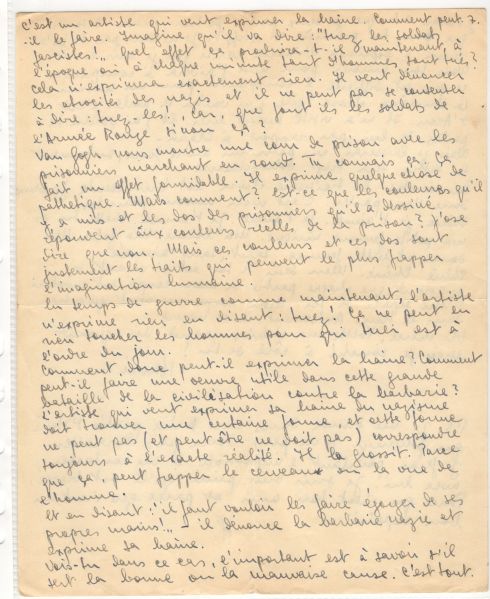 c'est un artiste qui veut exprimer la haine. Comment peut- 7.
-il le faire. Imagine qu'il va dire: "tuez les soldats
fascistes!" Quel effet ça produira-t-il maintenant, à
l'époque où à chaque minute tant d'hommes sont tués?
Cela n'exprimera exactement rien. Il veut dénoncer
les atrocités des nazis et il ne peut pas se contenter
à dire: tuez-les!, car, que font-ils les soldats de
l'Armée Rouge sinon ça?
Van Gogh nous montre une cour de prison avec les
prisonniers marchant en rond. Tu connais ça. Ça
fait un effet formidable. Il exprime quelque chose de
pathétique. Mais comment? Est-ce que les couleurs qu'il
y a mis et les dos des prisonniers qu'il a dessiné
répondent aux couleurs réelles de la prison? J'ose
dire que non. Mais ces couleurs et ces dos sont
justement les traits qui peuvent le plus frapper
l'imagination humaine.
En temps de guerre comme maintenant, l'artiste
n'exprime rien en disant: tuez! Ça ne peut en
rien toucher les hommes pour qui tuer est à
l'ordre du jour.
Comment donc peut-il exprimer la haine? Comment
peut-il faire une oeuvre utile dans cette grande
bataille de la civilisation contre la barbarie?
L'artiste qui veut exprimer sa haine du nazisme
doit trouver une certaine forme, et cette forme
ne peut pas (et peut être ne doit pas) correspondre
toujours à l'exacte réalité. Il la grossit. Parce
que ça, peut frapper le cerveau ou la vue de
l'homme.
Et en disant: "il faut vouloir les faire égorger de ses
propres mains!" - il dénonce la barbarie nazie et
exprime sa haine.
Vois-tu dans ce cas, l'important est à savoir s'il
sert la bonne ou la mauvaise cause. C'est tout.